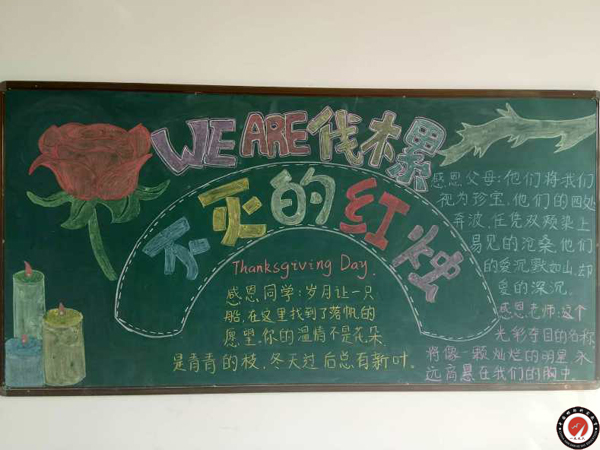 WE ARE 伐木累
不灭的红烛
Thanksgiving Day.
感恩同学:岁月让一只
船,在这里找到了落帆的
愿望.你的温情不是花朵
是青青的枝,冬天过后总有新叶.
感恩父母:他们将我们
视为珍宝.他们的四处
奔波,任凭双颊染上
易见的沧桑.他们
的爱沉默如山,却
爱的深沉.
感恩老师:这个
光彩夺目的名称
将像一颗灿烂的明星永
远高悬在我们的胸中.